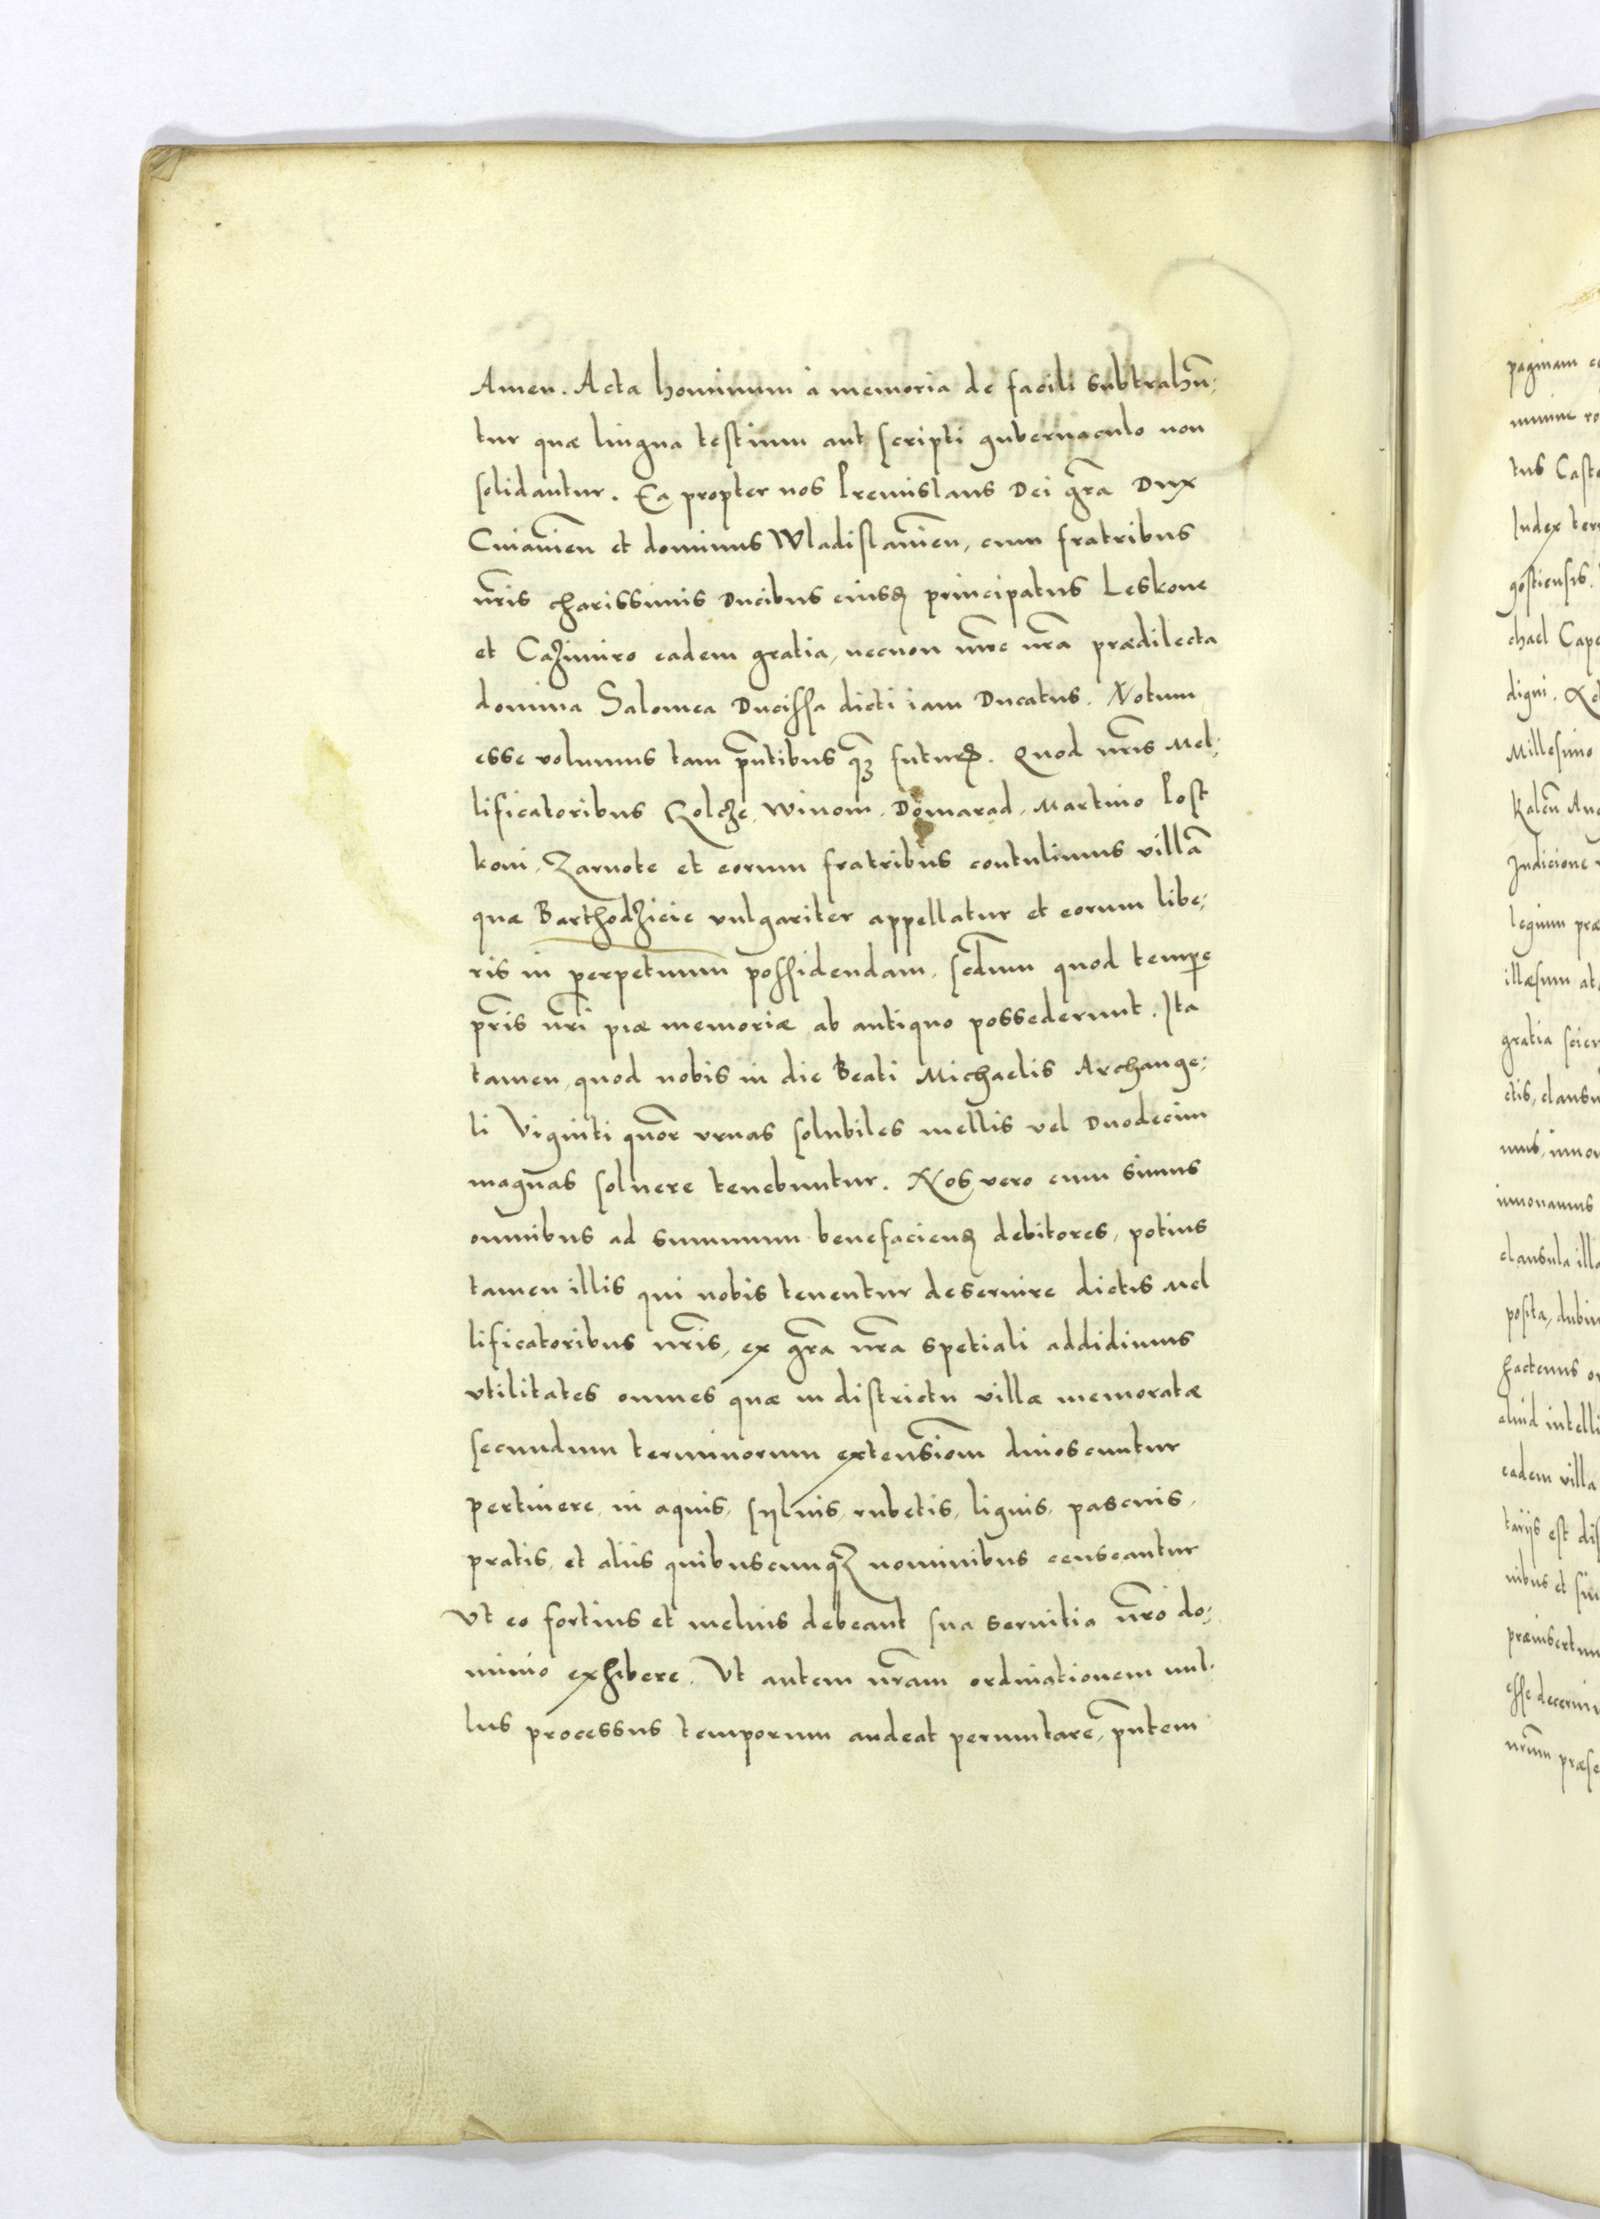 Amen. Acta hominum à memoria de facili subtrahūn:
tur quæ lingua testium aut scripti gubernaculo non
solidantur. Ea propter nos Premislaus Dei gr̄a Dux
Cuiavien̄ et dominus Wladislavien̄, cum fratribus
nr̄is charissimis Ducibus eiusꝫ principatus Leskone
et Cazimiro eadem gratia, necnon mr̄e nr̄a prædilecta
domina Salomea Ducissa dicti iam Ducatus. Notum
esse volumus tam pn̄tibus qꝫ futurꝭ. Quod nr̄is Mel:
lificatoribus Golcze, Winom, Domarad, Martino Post
koni, Zarnote et eorum fratribus contulimus villā
quæ Barthodzicie vulgariter appellatur et eorum libe:
ris in perpetuum possidendam, secd̄um quod temp̄e
pr̄is nr̄i piæ memoriæ ab antiquo possederunt. Ita
tamen, quod nobis in die Beati Michaelis Archange:
li Viginti quor̄ vrnas solubiles mellis vel Duodecim
magnas soluere tenebuntur. Nos vero cum simus
omnibus ad summum benefacienꝫ debitores, potius
tamen illis qui nobis tenentur deseruire dictis Mel
lificatoribus nr̄is, ex gr̄a nr̄a spetiali addidimus
vtilitates omnes quæ in districtu villæ memoratæ
secundum terminorum extensiom̄ dinoscuntur
pertinere, in aquis, syluis, rubetis, lignis, pascuis,
pratis, et aliis quibuscunqꝫ nominibus censeantur
Vt eo fortius et melius debeant sua seruitia nr̄o do:
minio exhibere. Vt autem nr̄am ordinationem nul:
lus processus temporum audeat permutare, pn̄tem
paginam
tus
Iudex
gostiensis.
chael
digni.
Millesimo
Kalen̄
Indicione
legium
illæsum
gratia
ctis,
clausula
posita,
hactenus
eadem villa
tarijs est
nibus et
præinsertum
esse
nr̄um